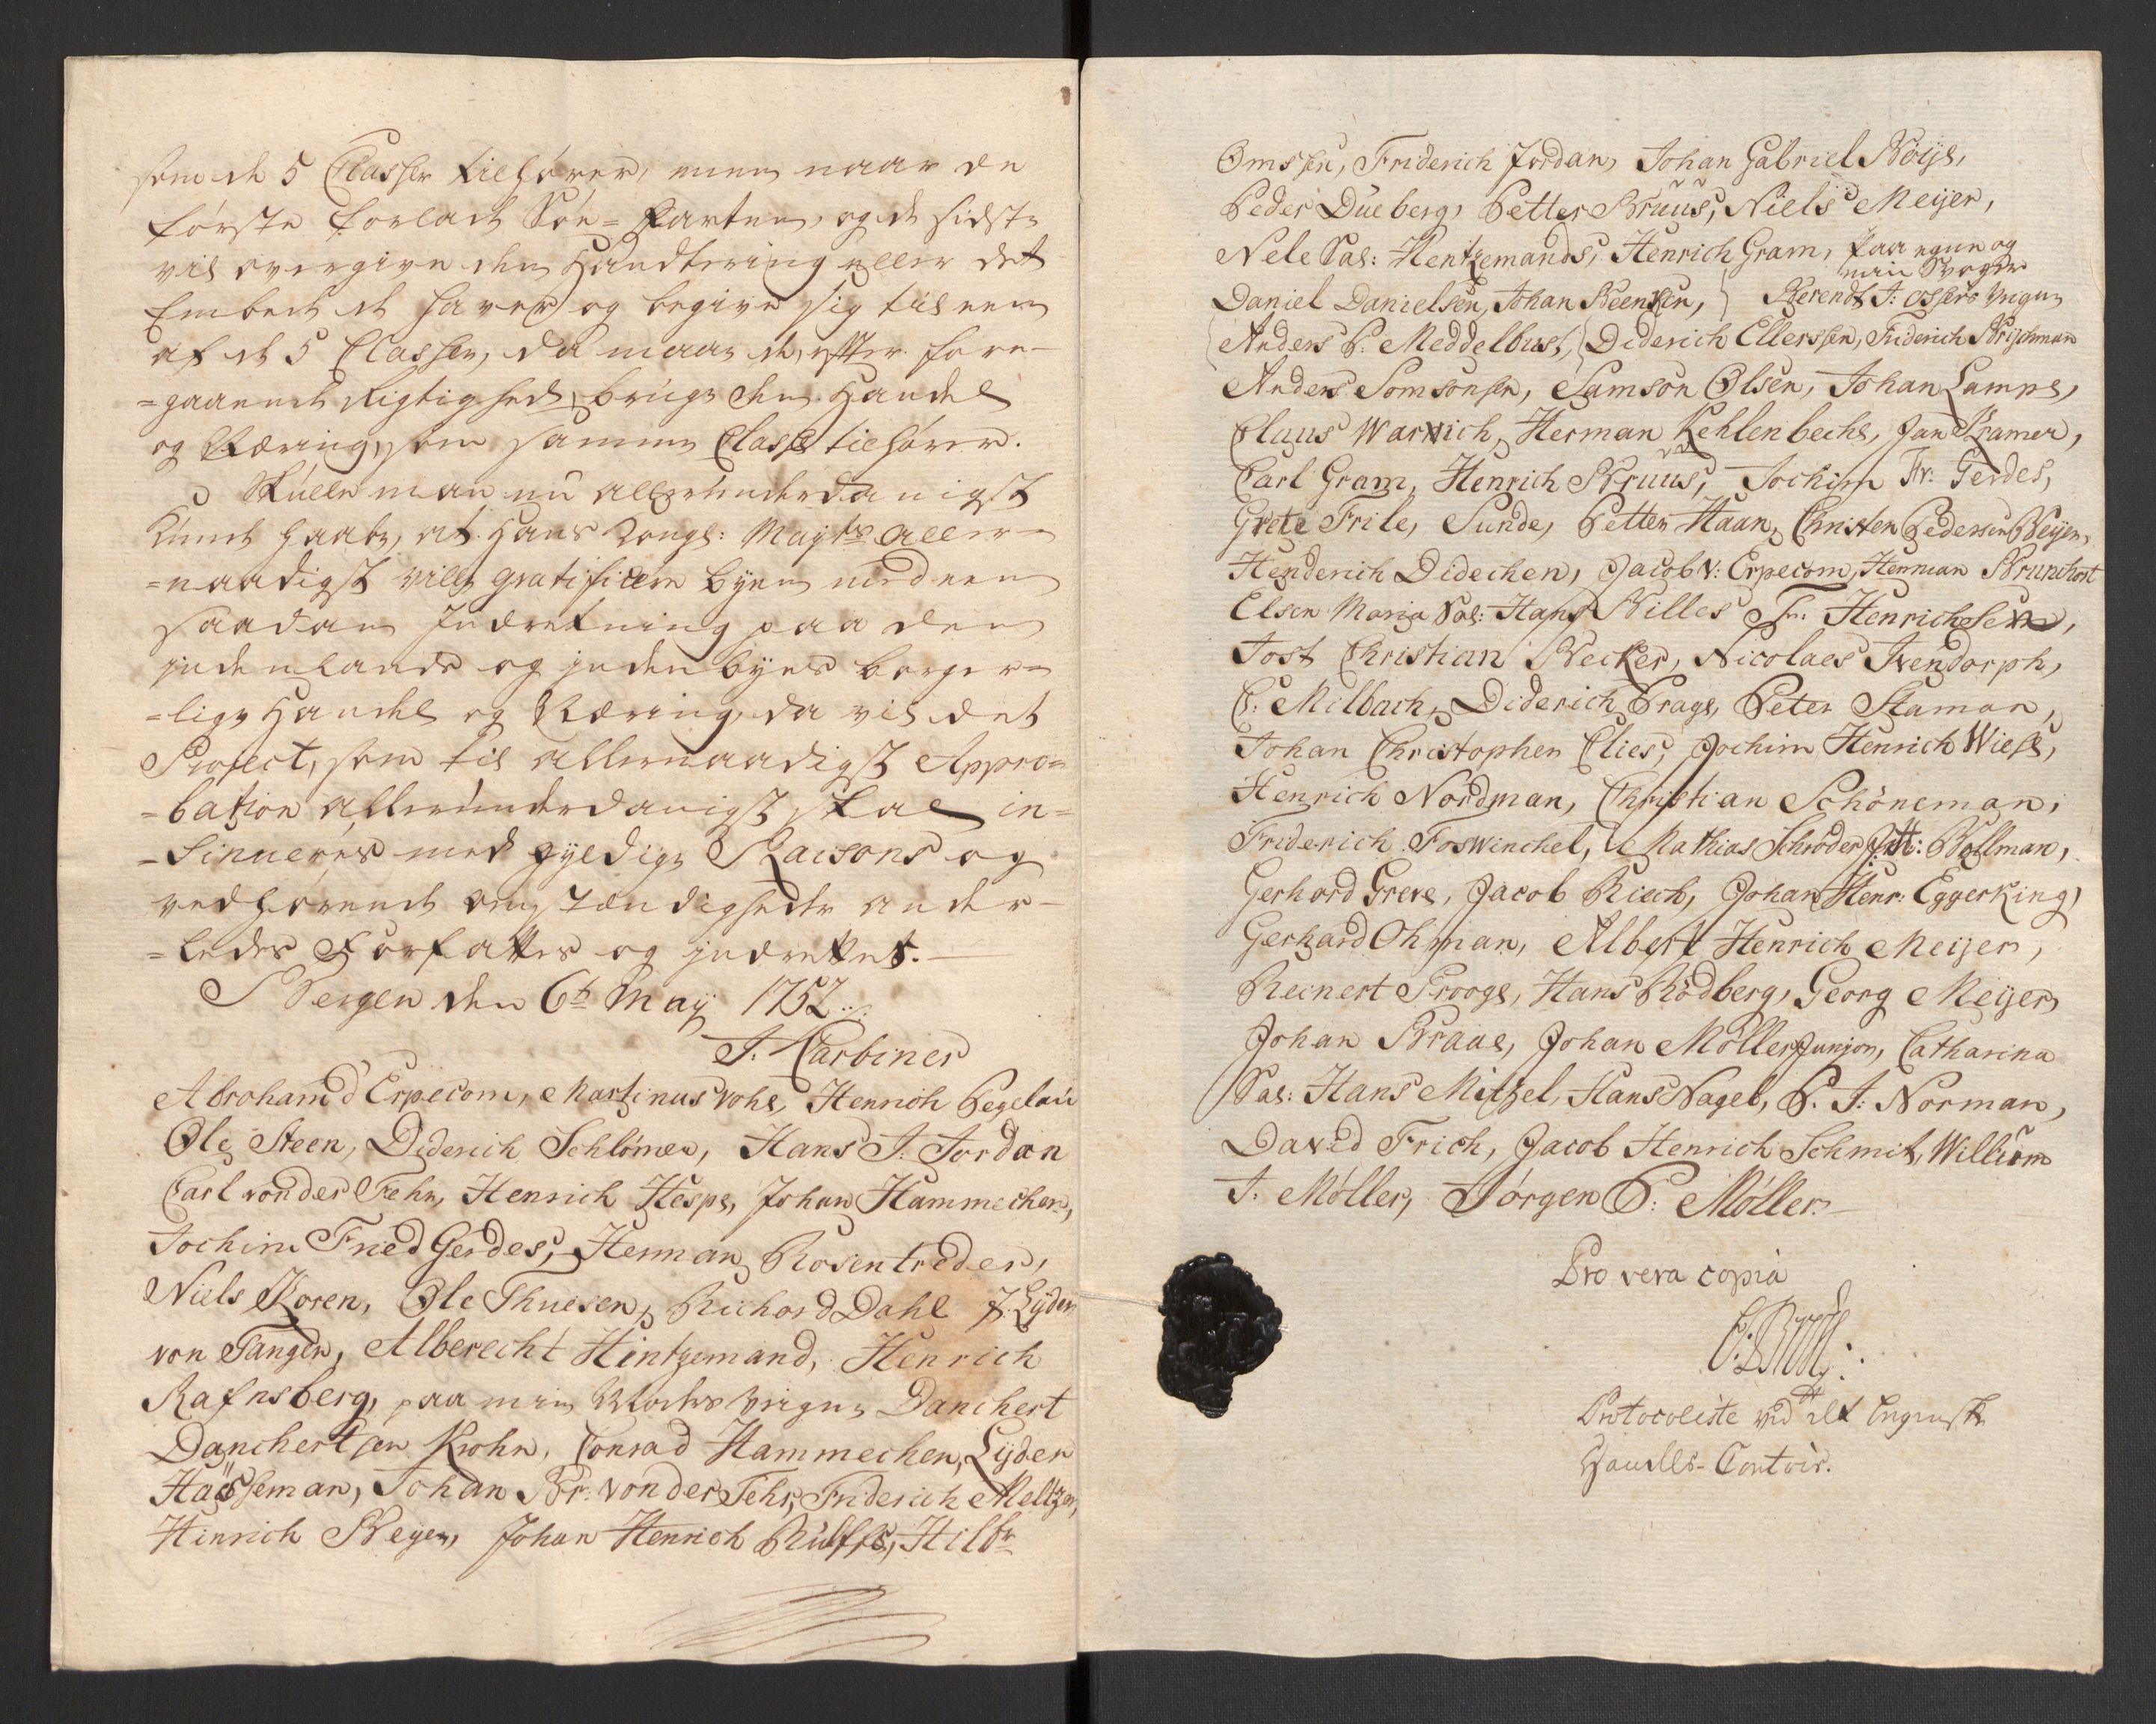 som de 5 Classer tilhører, men naar de
første forlade Søe-Farten, og de sidste
vil overgive den Handtering eller det
Embede de haver og begive sig til een
af de 5 Classer, da maae de, efter fore-
=gaaende Rigtighed, bruge den Handel
og Næring, som samme Classe tilhører.
Skulle man nu allerunderdanigst
kunde haabe, at Hans Kongl: Mayts. aller-
=naadigst ville gratificere Byen med een
saadan Indretning paa den
indenlands og indenbyes borger-
=lige Handel og Næring, da vil det
Project, som til allernaadigst Appro-
=bation allerunderdanigst skal in-
=sinueres med gyldige Raisons og
vedhørende omstændigheder ander-
=ledes Forfattes og indrettet.
Bergen den 6te May 1752.
J. Garbiner
Abraham d' Erpecom, Martinus Vohs, Henrich Pegelau
Ole Steen, Diderich Schlömer, Hans J. Jordan
Carl von der Fehr, Henrich Hespe, Johan Hammechen,
Jochim Fried Gerdes, Herman Rosentreder,
Niels Koren, Ole Thuesen, Richard Dahl J. Lyder
von Tangen, Alberecht Hintzemand, Henrich
Rafnsberg, paa min Moders Vegne Danchert
Danchertsen Krohn, Conrad Hammechen, Lyder
Hässeman, Johan Br: von der Fehr, Friderich Meltzer,
Hinrich Beyer, Johan Henrich Rulffs, Hilbr
Omsen, Friderich Jordan, Johan Gabriel Böije,
Peder Düeberg, Petter Bruus, Niels Meyer,
Nele Sal: Hentzemands, Henrich Gram, paa egne og
min Svoger
Daniel Danielsen, Johan Beenken, Berendt J: Vegne
Anders P. Meddelbus, Diderich Ellerssen, Friderich Krischman
Anders Somsonsen, Samson Olsen, Johan Lampe,
Claus Warnich, Herman Kehlenbechs, Jan Kramer,
Carl Gram, Henrich Bruus, Jochim Fr: Gerdes,
Grete Frile, Sunde, Petter Haan, Christen Pedersen Beyer,
Henderich Didechen, Jacob v: Erpecom, Herman Brunchorst
Elsen Maria Sal: Hans Nilles Fr. Henrichsen,
Jost Christian Becker, Nicolaes Ivendorph,
C: Milbach, Diderich Prage, Peter Staman,
Johan Christopher Clies, Jochim Henrich Wiese,
Henrich Nordman, Christian Schöneman,
Friderich Foswinchel, Mathias Schröder, J. H: Bollman,
Gerhard Greve, Jacob Riech, Johan Henr: Eggerking,
Gerhard Ohman, Albert Henrich Meijer,
Reinert Prooge, Hans Rödberg, Georg Meijer,
Johan Braae, Johan Möller Junior, Catharina
Sal: Hans Mitzel, Hans Nagel, P. J: Norman,
David Frich, Jacob Henrich Schmit, William
J. Møller, Jörgen P: Møller
Pro vera copia
Protocoliste ved det Bergenske
Handels-Contoir.